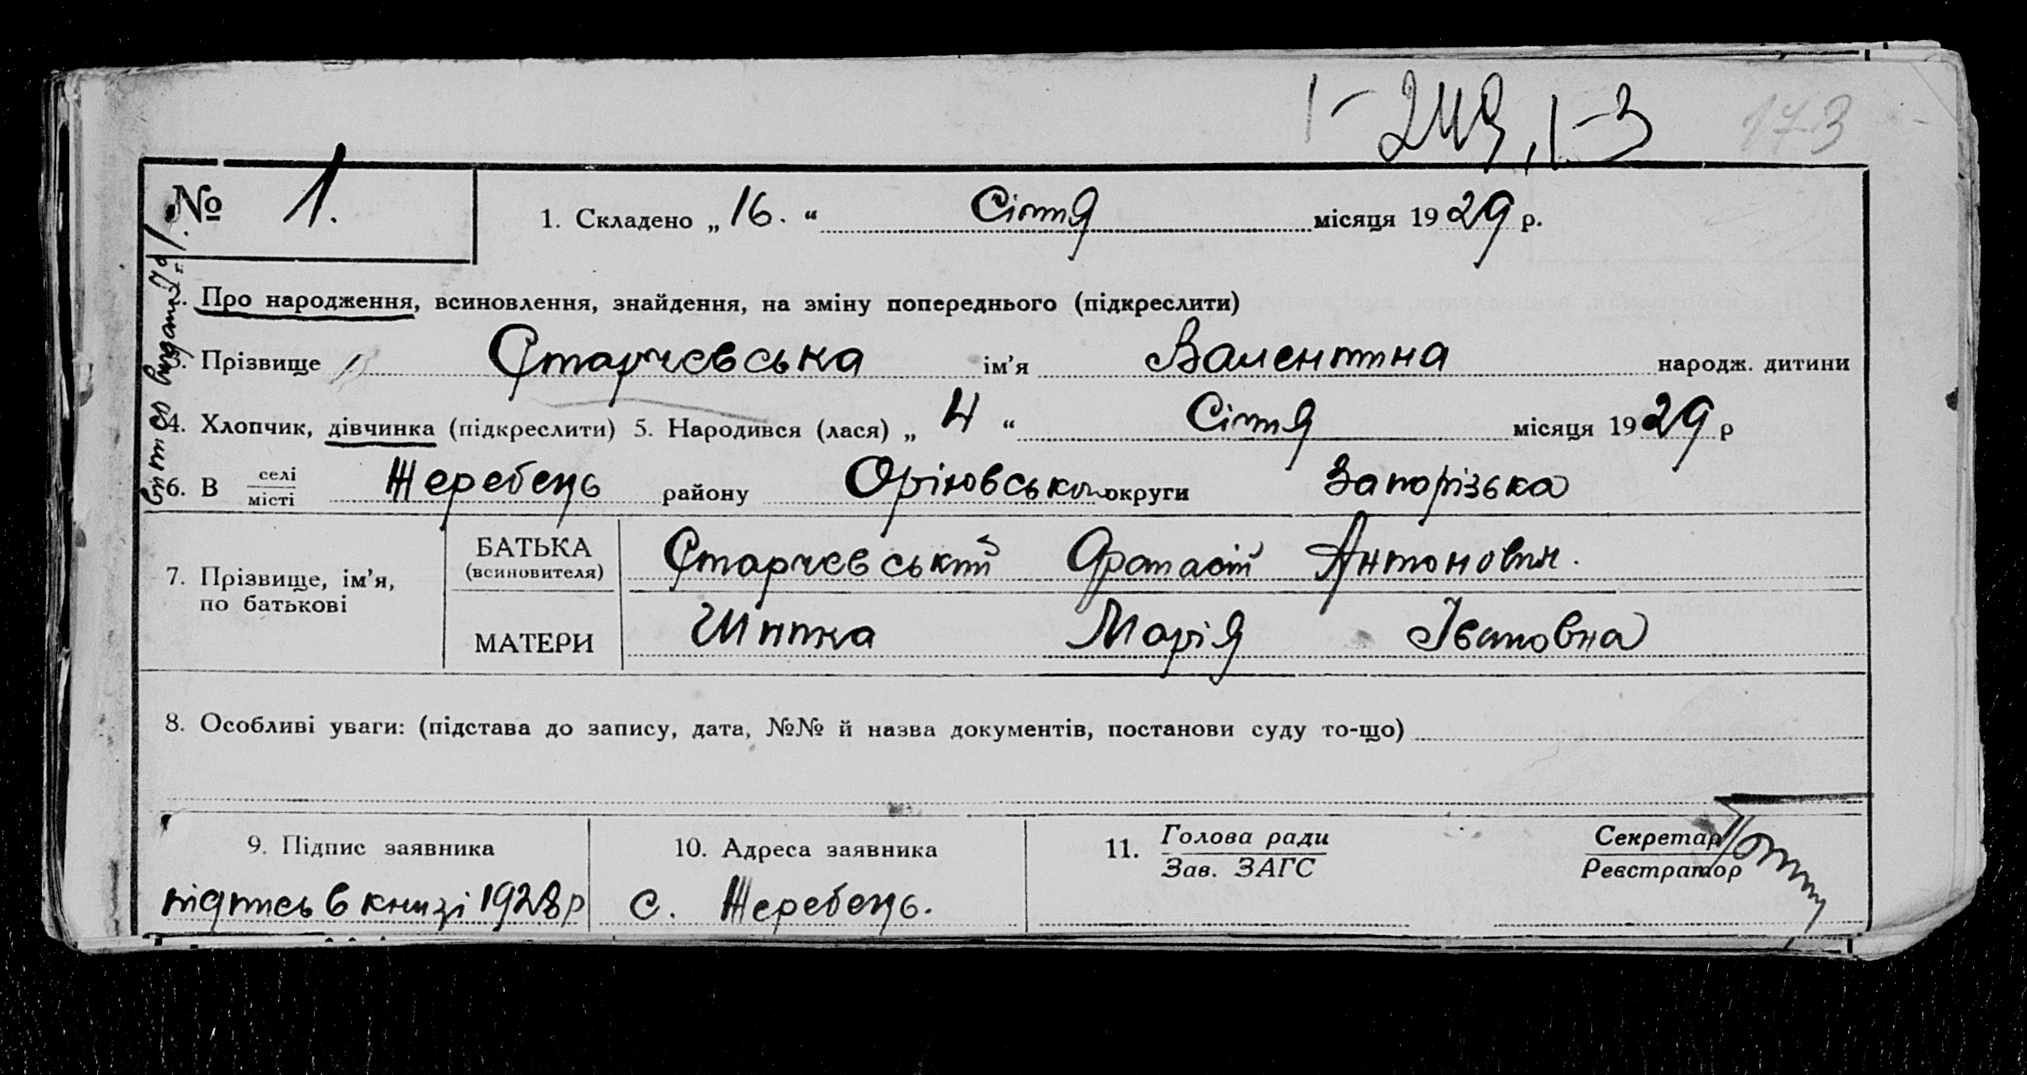 1-249, 1-3 173
№ 1.
1. Складено „16.“ Січня місяця 1929 р.
2. Про народження, всиновлення, знайдення, на зміну попереднього (підкреслити)
3. Прізвище Старчєвська ім'я Валентина народж. дитини
4. Хлопчик, дівчинка (підкреслити) 5. Народився (лася) „4“ Січня місяця 1929 р
6. В селі/місті Жеребець району Оріховсько округи Запорізька
7. Прізвище, ім'я, по батькові
БАТЬКА (всиновителя) Старчєвський Афанасій Антонович.
МАТЕРИ Шипка Марія Івановна
8. Особливі уваги: (підстава до запису, дата, №№ й назва документів, постанови суду то-що)
9. Підпис заявника
підпись в книзі 1928 р
10. Адреса заявника
с. Жеребець.
11. Голова ради
Зав. ЗАГС
Секретар
Реєстратор